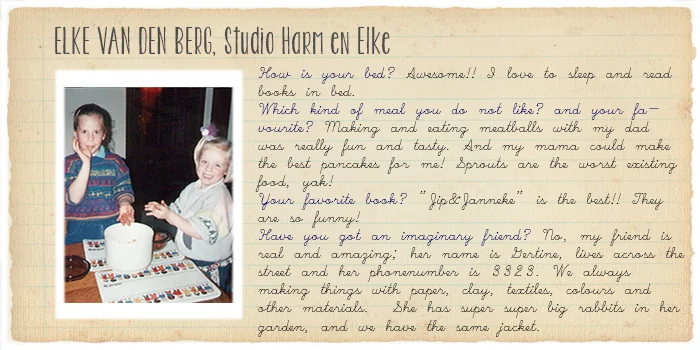 ELKE VAN DEN BERG, Studio Harm en Elke
How is your bed? Awesome!! I love to sleep and read
books in bed.
Which kind of meal you do not like? and your fa-
vourite? Making and eating meatballs with my dad
was really fun and tasty. And my mama could make
the best pancakes for me! Sprouts are the worst existing
food, yak!
Your favorite book? "Jip&Janneke" is the best!! They
are so funny!
Have you got an imaginary friend? No, my friend is
real and amazing; her name is Gertine, lives across the
street and her phonenumber is 3323. We always
making things with paper, clay, textiles, colours and
other materials. She has super super big rabbits in her
garden, and we have the same jacket.